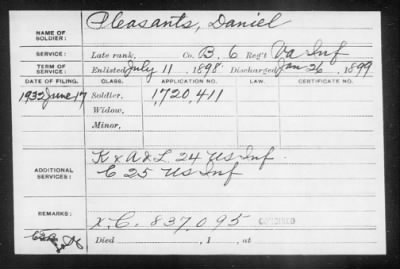 NAME OF SOLDIER: Pleasants, Daniel
SERVICE: Late rank, Co. B. 6 Reg't Va Inf
TERM OF SERVICE: Enlisted July 11, 1898. Discharged Jan 26, 1899
DATE OF FILING. CLASS. APPLICATION NO. LAW. CERTIFICATE NO.
1932 June 17 Soldier, 1,720,411
Widow,
Minor,
ADDITIONAL SERVICES: K & A & L 24 US Inf.
C 25 US Inf
REMARKS: X.C. 837,095 COMBINED
Died , 1 , at